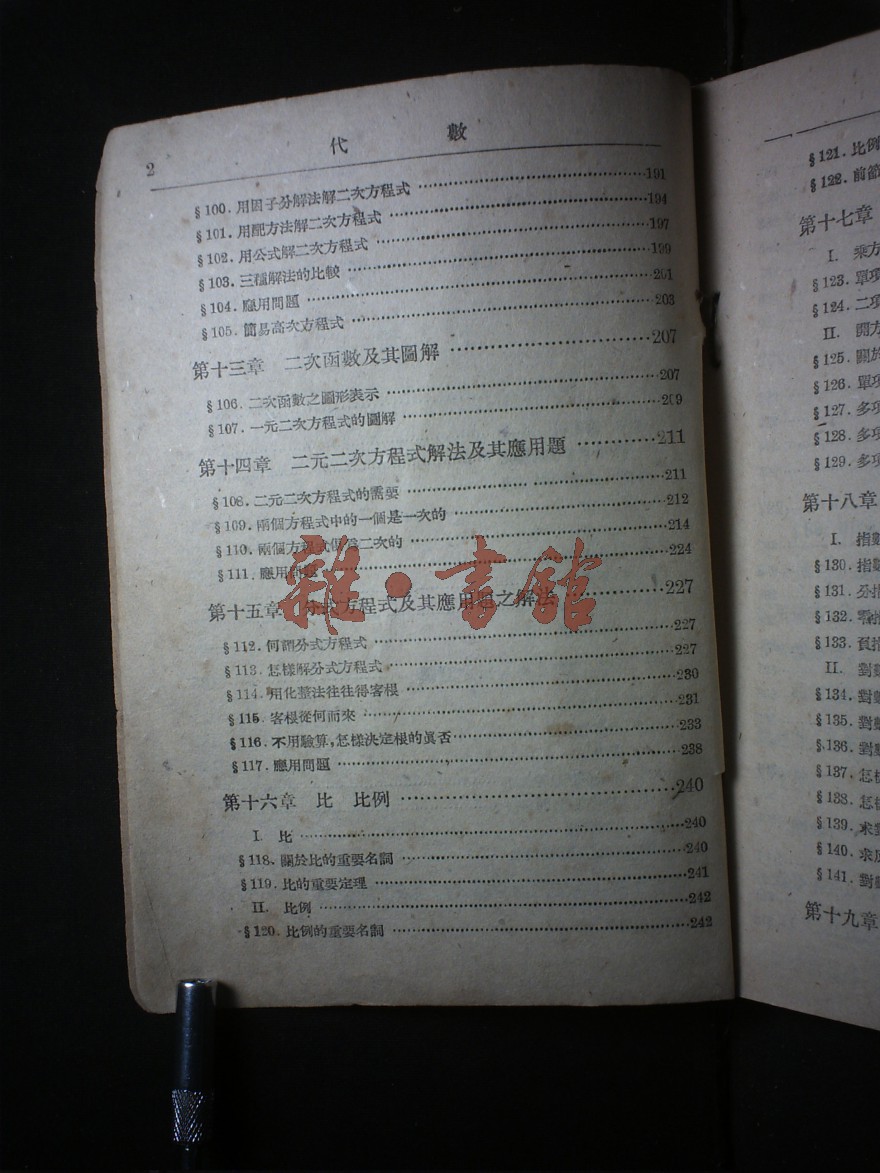 2
代 數
§100. 用因子分解法解二次方程式 191
§101. 用配方法解二次方程式 194
§102. 用公式解二次方程式 197
§103. 三種解法的比較 199
§104. 應用問題 201
§105. 簡易高次方程式 203
第十三章 二次函數及其圖解 207
§106. 二次函數之圖形表示 207
§107. 一元二次方程式的圖解 209
第十四章 二元二次方程式解法及其應用題 211
§108. 二元二次方程式的需要 211
§109. 兩個方程式中的一個是一次的 212
§110. 兩個方程式俱爲二次的 214
§111. 應用問題 224
雜·書館
第十五章 分式方程式及其應用題之解法 227
§112. 何謂分式方程式 227
§113. 怎樣解分式方程式 227
§114. 用化整法往往得客根 230
§115. 客根從何而來 231
§116. 不用驗算,怎樣決定根的眞否 233
§117. 應用問題 238
第十六章 比 比例 240
I. 比 240
§118. 關於比的重要名詞 240
§119. 比的重要定理 241
II. 比例 242
§120. 比例的重要名詞 242
§121. 比例
§122. 前節
第十七章
I. 乘方
§123. 單項
§124. 二項
II. 開方
§125. 關於
§126. 單項
§127. 多項
§128. 多項
§129. 多項
第十八章
I. 指數
§130. 指數
§131. 分指
§132. 零指
§133. 負指
II. 對數
§134. 對數
§135. 對數
§136. 對數
§137. 怎
§138. 怎
§139. 求對
§140. 求反
§141. 對數
第十九章